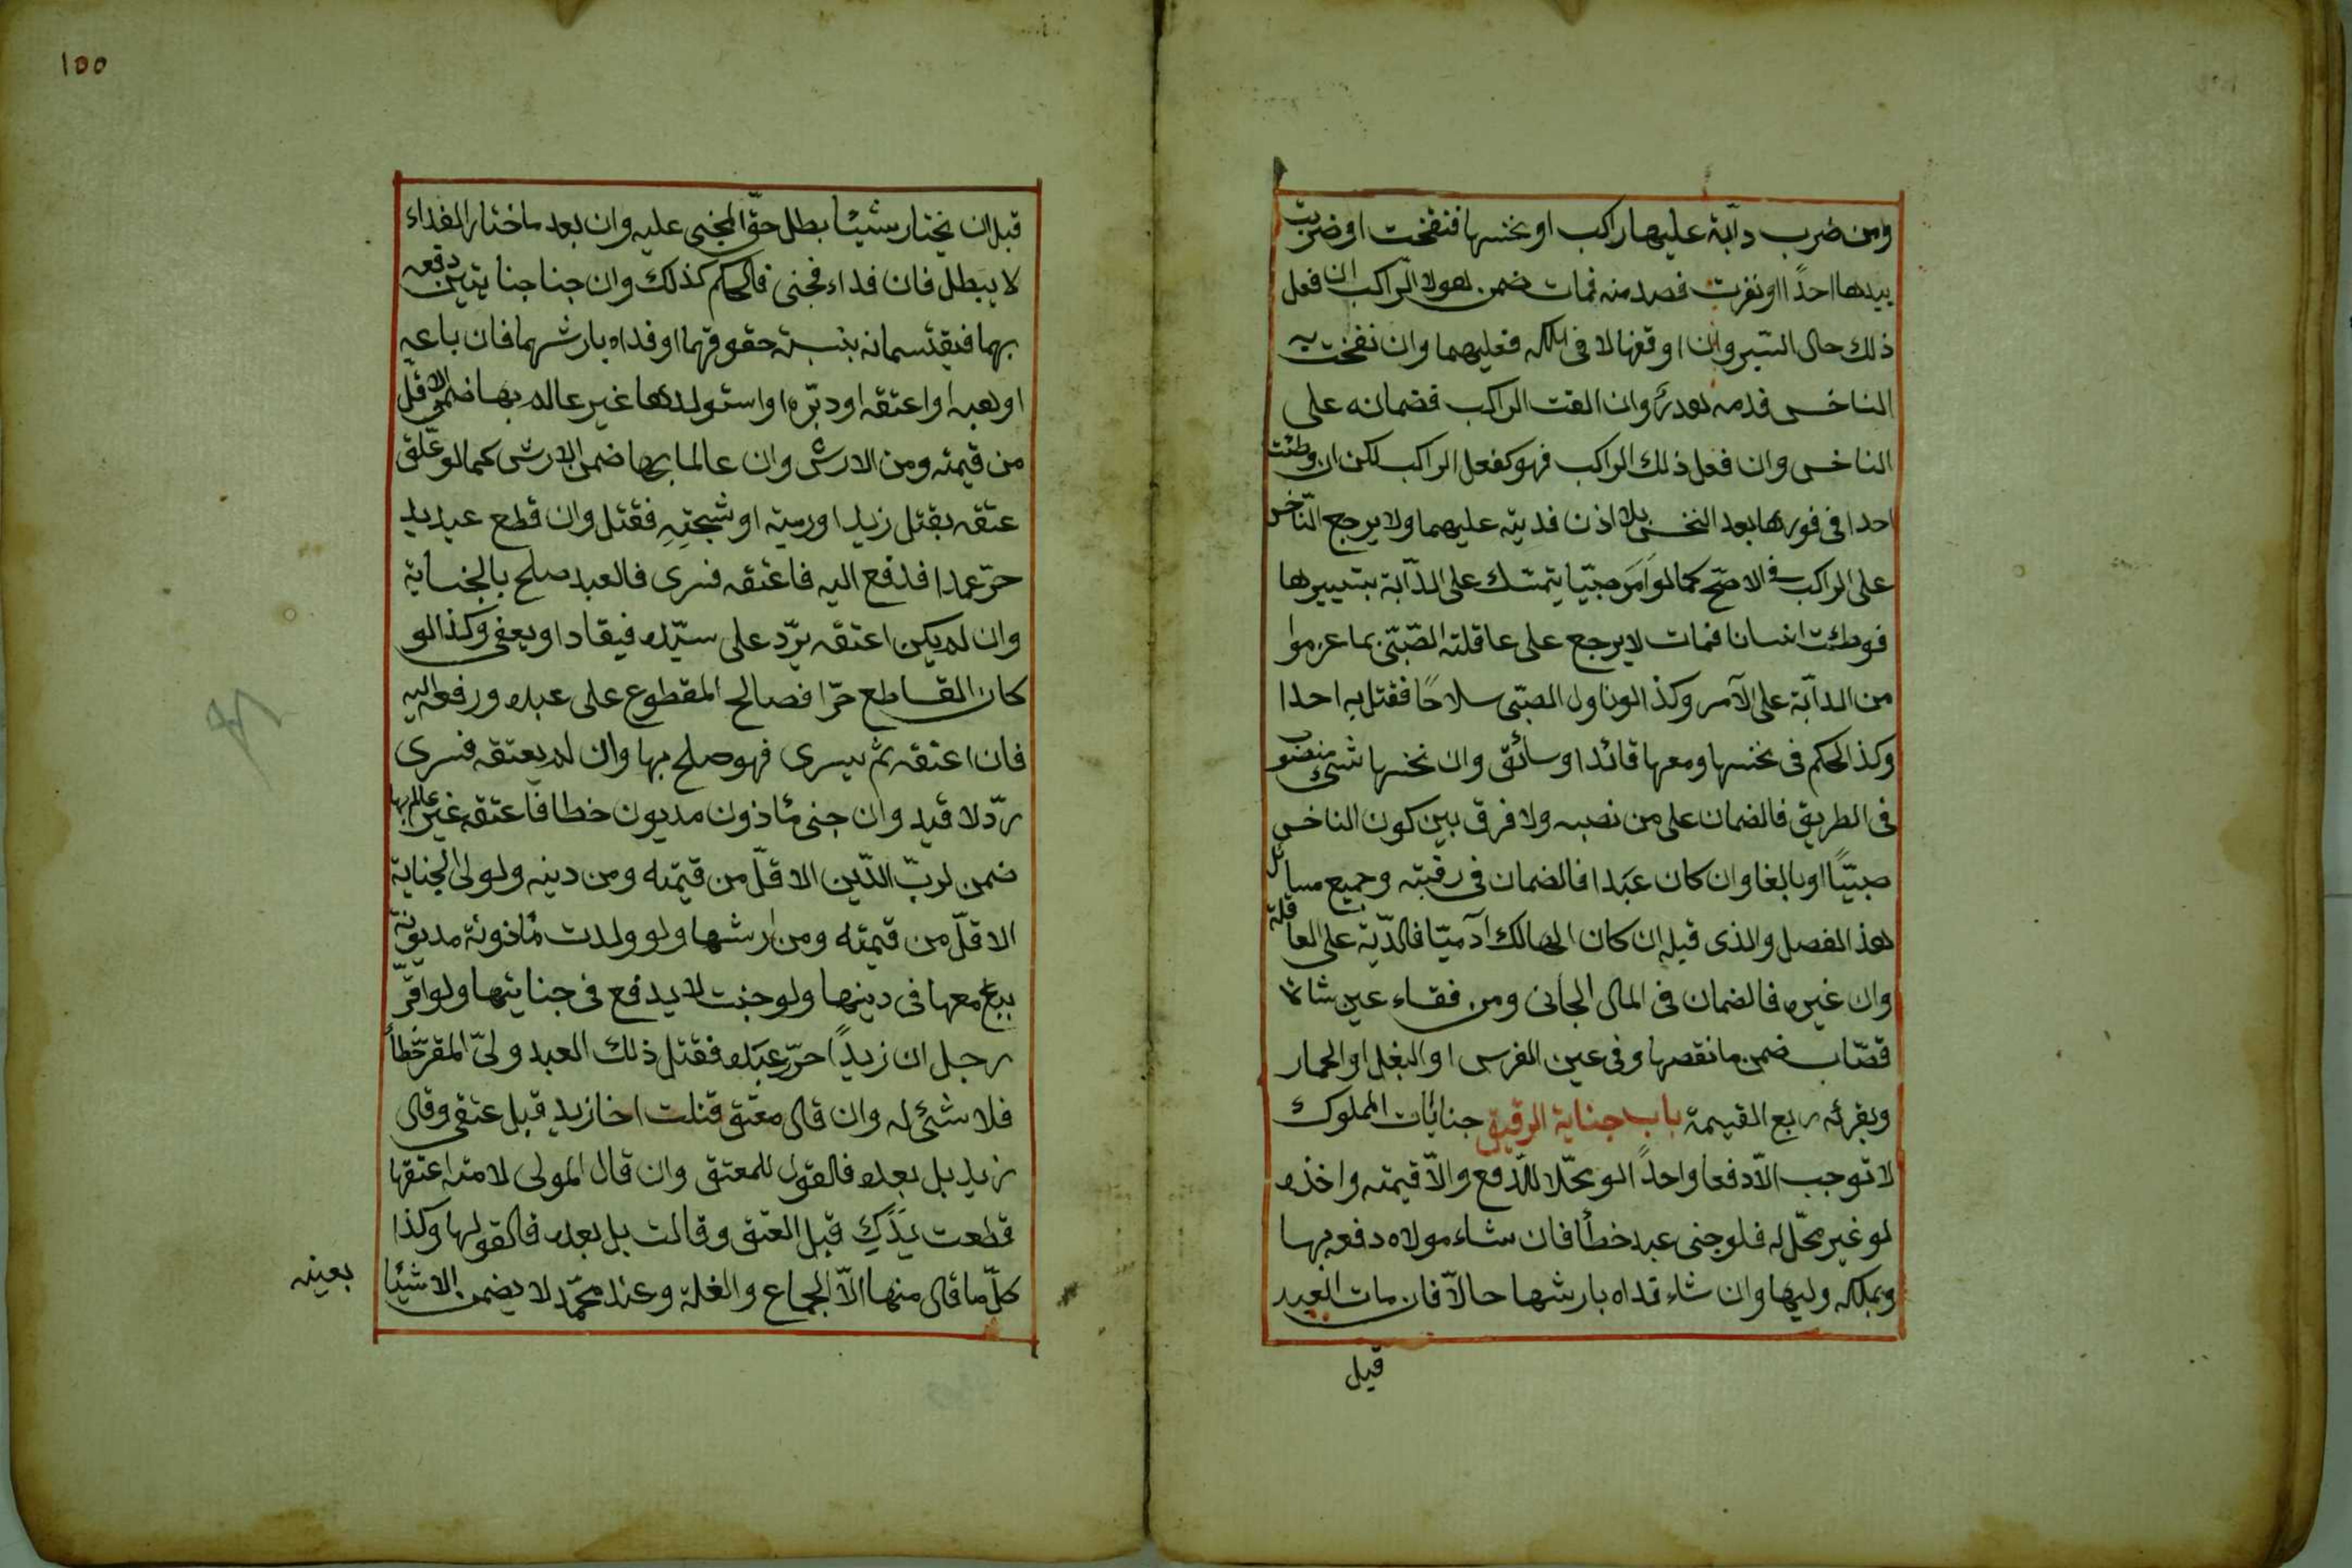 ومن ضرب دآبة عليها راكب او نخسها فنفخت او ضربت
بيدها احدًا او نفرت فصدمنه فمات ضمن هو لا الرّاكب ان فعل
ذلك حال السّير وان اوقفها لا فى ملكه فعليهما وان نفخت
الناخس فدمه هدرٌ وان القت الراكب فضمانه على
الناخس وان فعل ذلك الراكب فهو كفعل الراكب لكن ان وطئت
احدا فى فورها بعد النخس بلا اذن فديته عليهما ولا يرجع النّاخس
على الراكب فى الاصّح كما لو امَر صبّيا يتمسّك على الدآبة بتسييرها
فوطئت انسانا فمات لا يرجع على عاقلته الصّبّى بما غرموا
من الدآبة على الآمر وكذا لو ناول الصبّى سلاحًا فقتل به احدا
وكذا الحكم فى نخسها ومعها قائد او سائق وان نخسها شئ منصوب
فى الطريق فالضمان على من نصبه ولا فرق بين كون الناخس
صبيّاً او بالغا وان كان عبَدا فالضمان فى رقبته وجميع مسائل
هذ الفصل والذى قبله ان كان الهالك آدميّا فالدّية على العاقلة
وان غيره فالضمان فى المال الجانى ومن فقاء عين شاة
قصّاب ضمن ما نقصها وفى عين الفرس او البغل او الحمار
وبقرئه ربع القيمة باب جناية الرقيق جنايات المملوك
لا توجب الاّ دفعا واحداً لو محّلا للدّفع والاّ قيمته واخذه
لو غير محّل له فلو جنى عبد خطأ فان شاء مولاه دفعه بها
ويملكه وليها وان شاء فداه بارشها حالاّ فان مات العبد
قبل
١٥٥
قبل ان يختار شيئا بطل حقّ المجنى عليه وان بعد ما ختار الفداء
لا يبطل فان فداء فجنى فالحكم كذلك وان جنا جنايتين دفعه
بهما فيقتسمانه بنسبة حقوقهما او فداه بارشهما فان باعه
او وهبه او اعتقه او دبّره او استولدها غير عالم بها ضمن الاقل
من قيمته ومن الارش وان عالما بها ضمن الارش كما لو علّق
عتقه بقتل زيد او رميته او شجّتِهِ فقتل وان قطع عبد يد
حرّ عمدا فدفع اليه فاعتقه فسرى فالعبد صلح بالجناية
وان لم يكن اعتقه يرّد على سيّده فيقاد او يعفى وكذا لو
كان القاطع حرّا فصالح المقطوع على عبده ورفعه اليه
فان اعتقه ثم يسرى فهو صلح بها وان لم يعتقه فسرى
ردّ لا قيد وان جنى مأذون مديون خطا فاعتقه غير عالم بها
ضمن لربّ الدّين الاقلّ من قيمته ومن دينه ولولى الجناية
الاقلّ من قيمته ومن ارشها ولو ولدت مأذونة مديونة
بيع معها فى دينها ولو جنت لا يدفع فى جنايتها ولو اقرّ
رجل ان زيداً حرّر عبَده فقتل ذلك العبد ولىّ المقر خطأً
فلا شئ له وان قال معتق قتلت اخا زيد قبل عتقى وقال
زيد بل بعده فالقول للمعتق وان قال المولى لامته اعتقها
قطعت يَدَكِ قبل العتق وقالت بل بعده فالقولها وكذا
كلّ ما قال منها الاّ الجماع والغلة وعند محمّد لا يضمن الا شيئا
بعينه